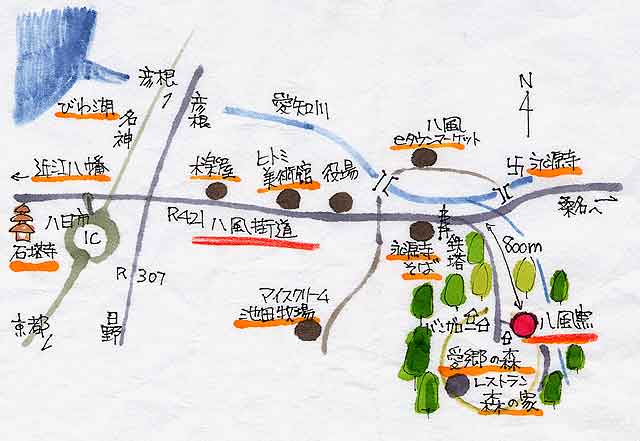 彦根
びわ湖
名神
彦根
愛知川
八風
eタウンマーケット
N
卐 永源寺
← 近江八幡
木楽屋
ヒトミ
美術館
役場
桑名へ→
八日市
IC
石塔寺
R421 八風街道
永源寺
そば
鉄塔
800m
R307
マイスクリーム
池田牧場
バンガロー
八風窯
京都
日野
愛郷の森
レストラン
森の家